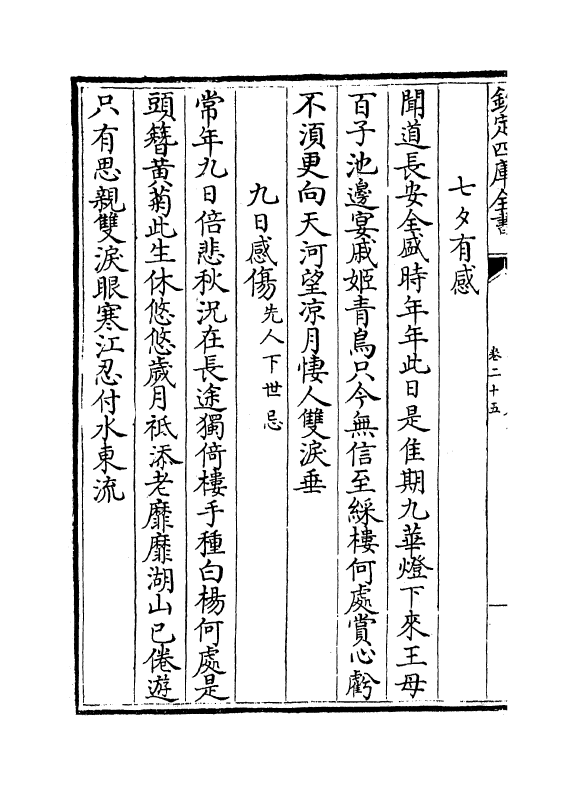 欽定四庫全書
卷二十五
七夕有感
聞道長安全盛時年年此日是佳期九華燈下來王母
百子池邊宴戚姬青鳥只今無信至綵樓何處賞心虧
不須更向天河望凉月悽人雙淚垂
九日感傷先人下世忌
常年九日倍悲秋况在長途獨倚樓手種白楊何處是
頭簪黄菊此生休悠悠歲月祗添老靡靡湖山已倦遊
只有思親雙淚眼寒江忍付水東流